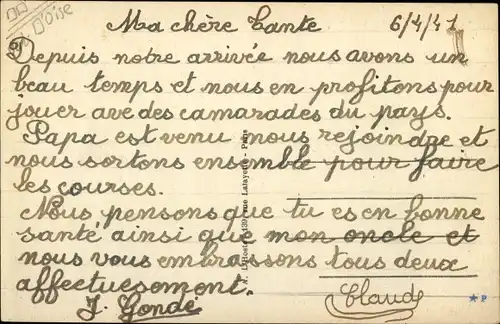 D'Oise
Ma chère Tante 6/4/41
Depuis notre arrivée nous avons un
beau temps et nous en profitons pour
jouer ave des camarades du pays.
Papa est venu nous rejoindre et
nous sortons ensemble pour faire
les courses.
Nous pensons que tu es en bonne
santé ainsi que mon oncle et
nous vous embrassons tous deux
affectuesoment.
J. Gondé Claude
Rue Lafayette - Paris
★ P